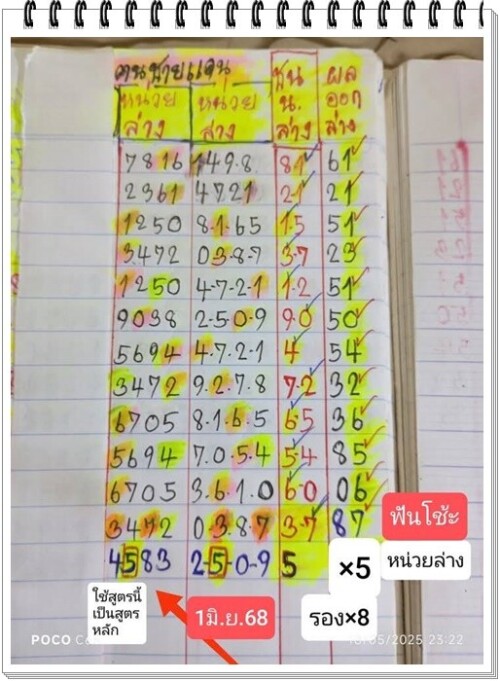 คนชายแดน
หน่วย ล่าง หน่วย ล่าง ชน น. ล่าง ผล ออก ล่าง
7816 149.8 81 61
2361 4721 21 21
1250 8.1.65 15 51
3472 0387 3.7 23
1250 4-7-2-1 1.2 51
9038 2-5.0.9 90 50
5694 4.7.2-1 4 54
3472 9.2.7.8 7.2 32
6705 8.1.6.5 65 36
5694 7.0.5.4 54 85
6705 3.6.1.0 6.0 06
3472 0.3.8.7 3.7 87
4583 2-5-0-9 5 ×5
ฟันโช้ะ
หน่วยล่าง
ใช้สูตรนี้
เป็นสูตร
หลัก
1มิ.ย.68
รอง×8
POCO
/05/2025 23:22